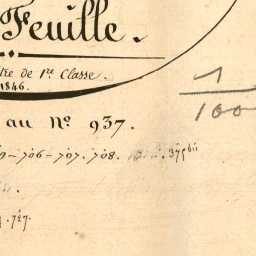 Feuille.
tie de 1re Classe.
1846.
1
1000
au No. 937.
706 - 707. 708. 375bis
4. 727.